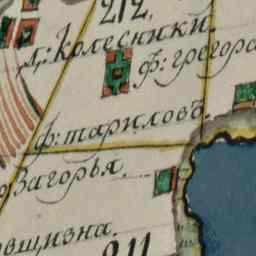 212.
д: Колесники.
ф: грегора
ф: тариловъ.
Загорья.
вщизна.
211